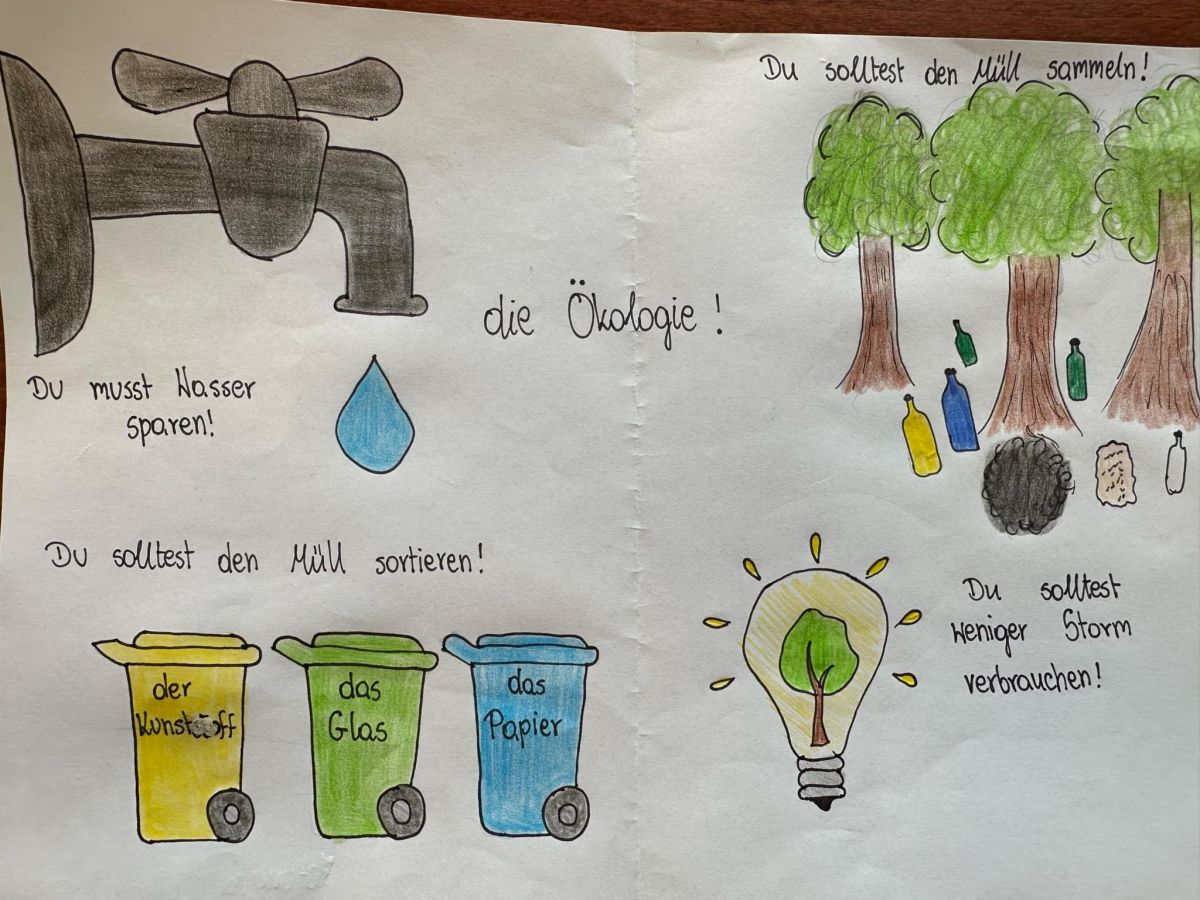 Du solltest den Müll sammeln!
die Ökologie!
Du musst Wasser
sparen!
Du solltest den Müll sortieren!
der
Kunststoff
das
Glas
das
Papier
Du solltest
weniger Storm
verbrauchen!